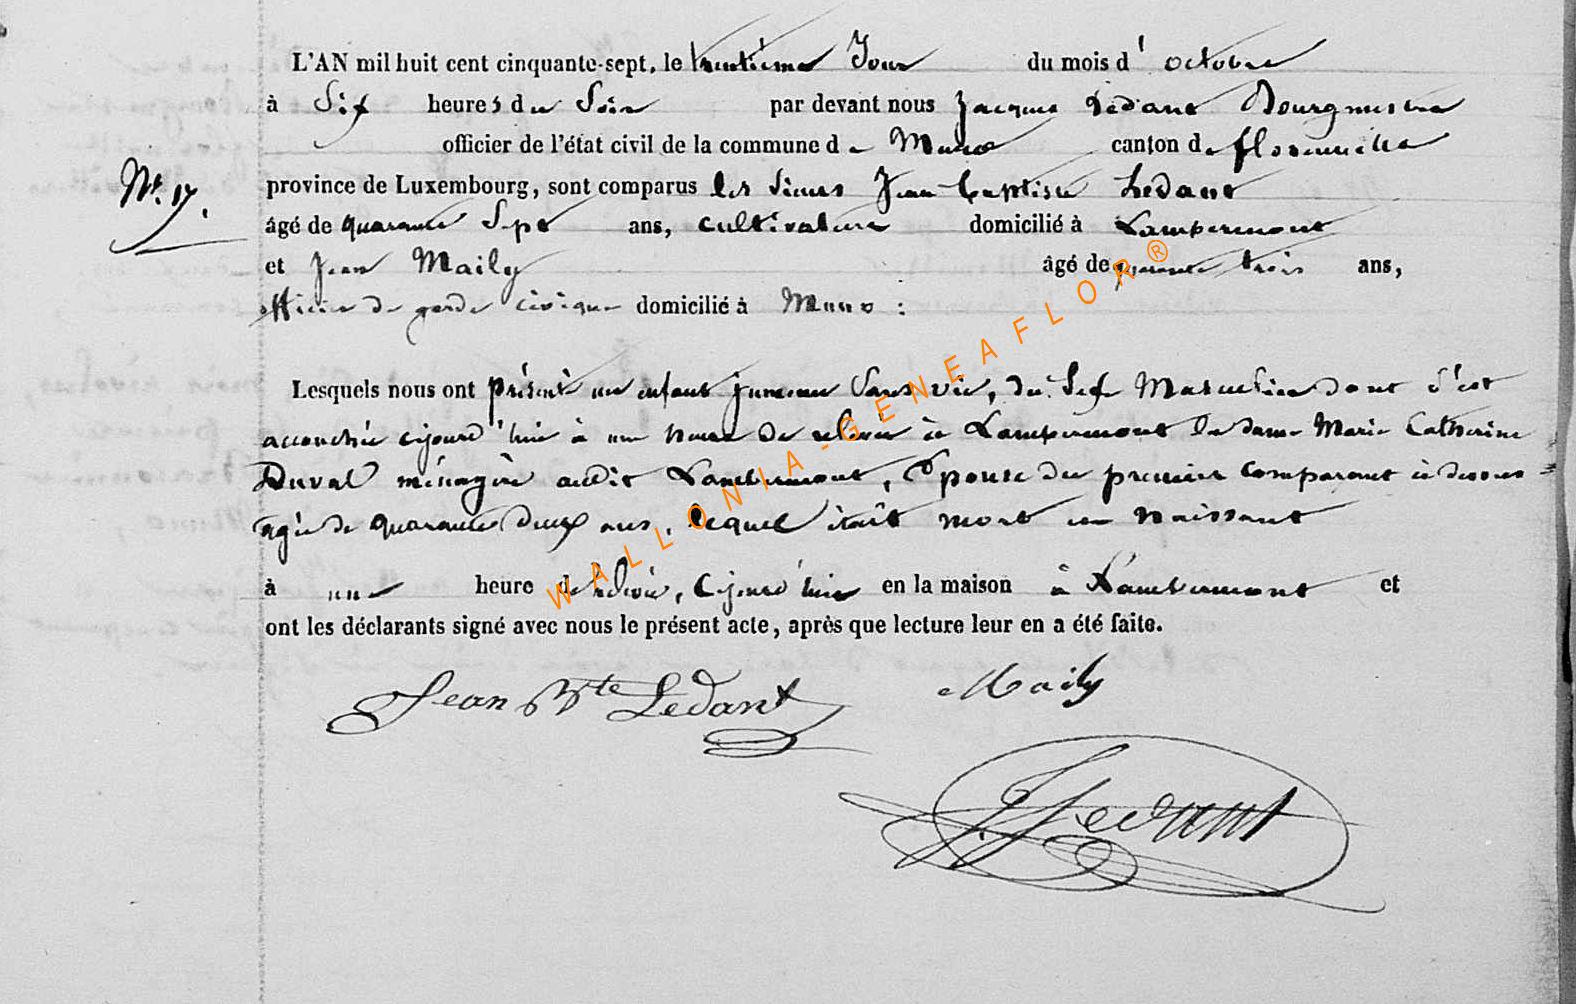 L'AN mil huit cent cinquante-sept, le trentième Jour du mois d'octobre
à Six heures du Soir par devant nous Jacques Ledant Bourgmestre
officier de l'état civil de la commune de Muno canton de florenville
Nº. 17.
province de Luxembourg, sont comparus les Sieurs Jean Baptiste Ledant
âgé de quarante Sept ans, cultivateur domicilié à Lambermont
et Jean Maily âgé de quarante trois ans,
officier de garde civique domicilié à Muno :
Lesquels nous ont présenté un enfant jumeau Sans vie, du Sexe Masculin dont s'est
accouchée cejourd'hui à une heure de relevée à Lambermont la dame Marie Catherine
Duval ménagère audit Lambermont, Epouse du premier comparant ci dessus
agée de quarante deux ans, lequel était mort en naissant
à une heure de relevée, cejourd'hui en la maison à Lambermont et
ont les déclarants signé avec nous le présent acte, après que lecture leur en a été faite.
Jean Bte Ledant Maily
J Ledant
WALLONIA-GENEAFLOR®